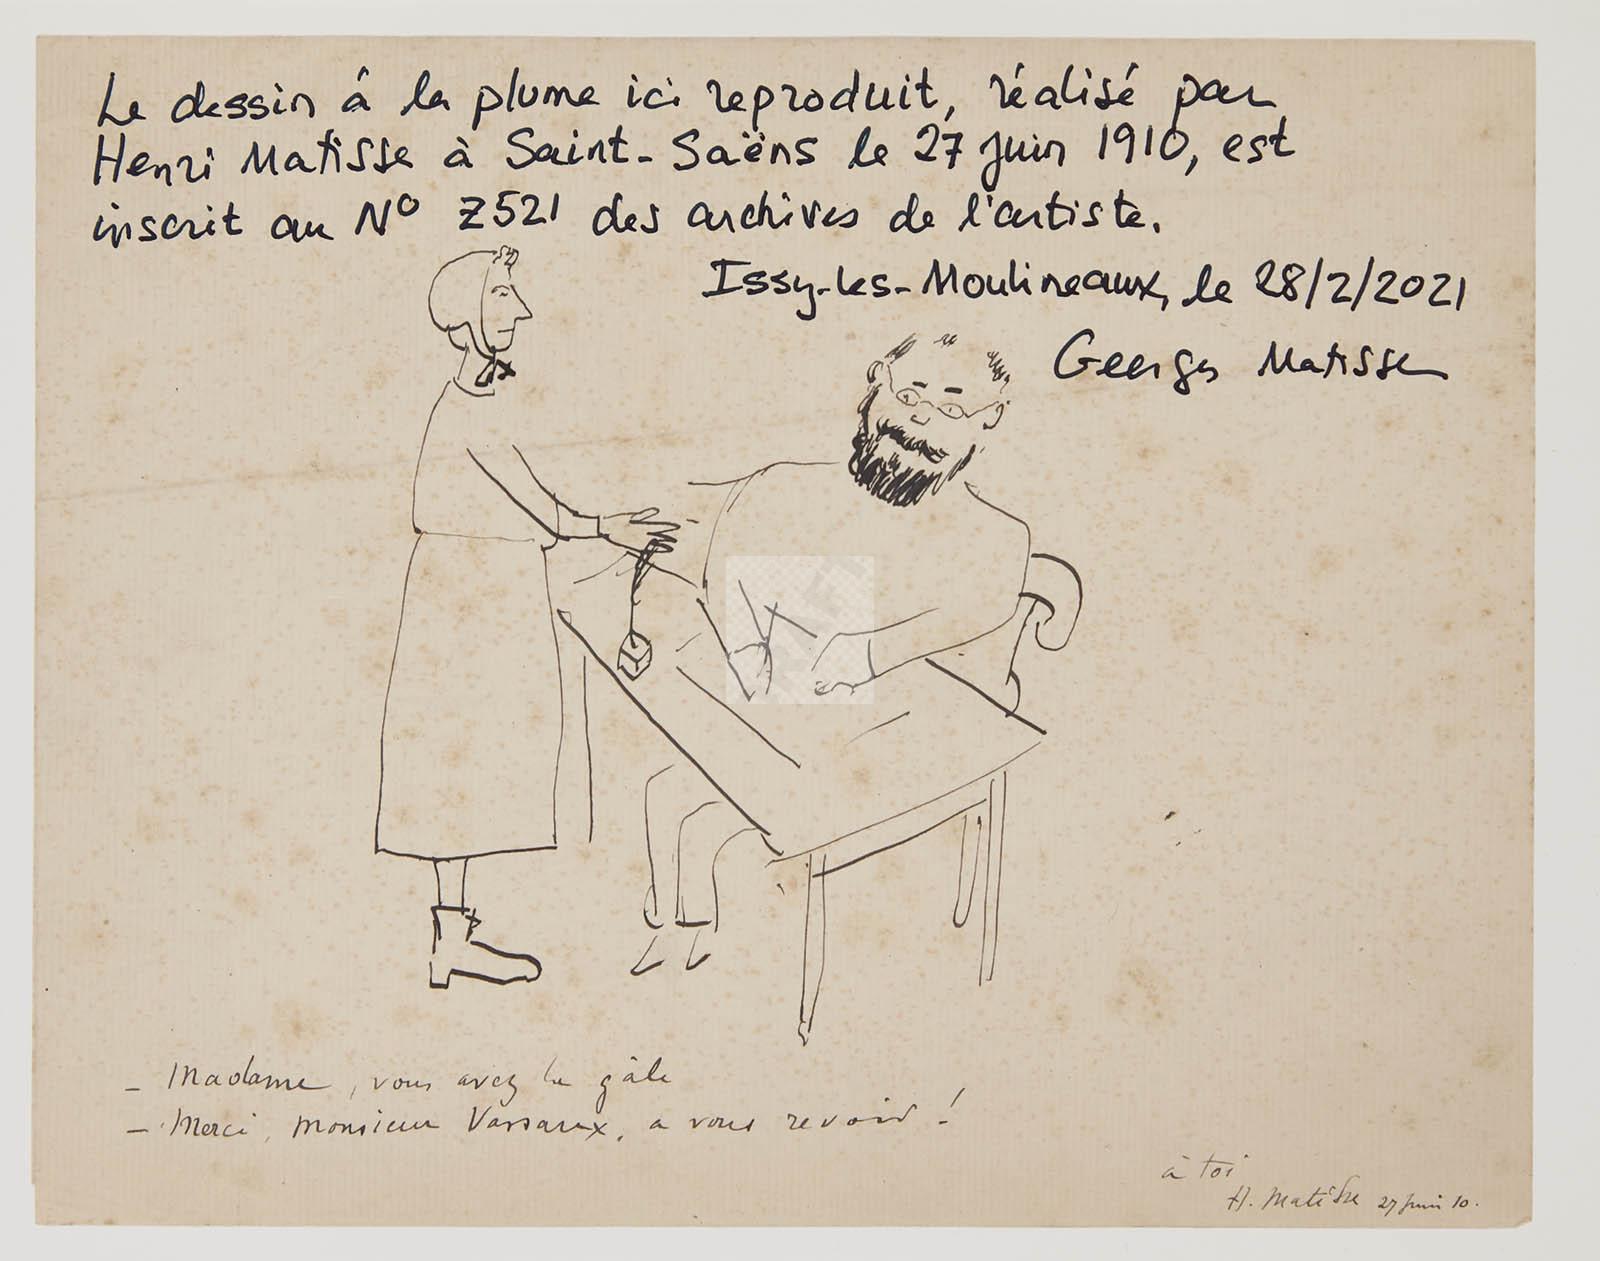 Le dessin à la plume ici reproduit, réalisé par
Henri Matisse à Saint-Saëns le 27 juin 1910, est
inscrit au N° Z521 des archives de l'artiste.
Issy-les-Moulineaux, le 28/2/2021
Georges Matisse
– Madame, vous avez la gâle
– Merci, monsieur Vassaux, a vous revoir !
à toi
H. Matisse 27 juin 10.